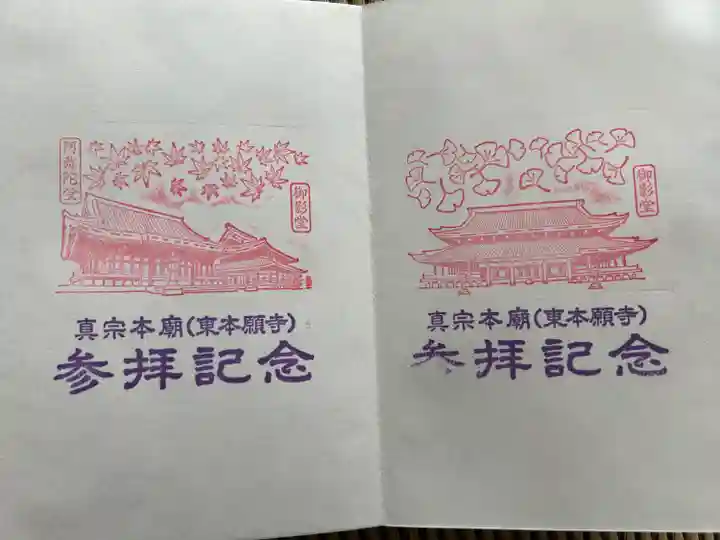 阿弥陀堂
御影堂
真宗本廟(東本願寺)
参拝記念
御影堂
真宗本廟(東本願寺)
参拝記念